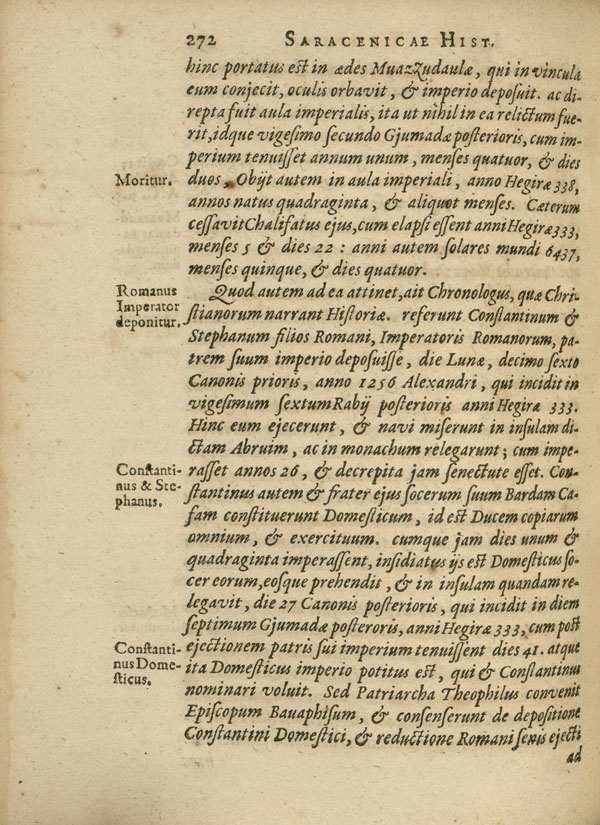 272 SARACENICAE HIST.
hinc portatus est in ædes MuazZudaulæ, qui in vincula
eum conjecit, oculis orbavit, & imperio deposuit. ac di-
repta fuit aula imperialis, ita ut nihil in ea relictum fue-
rit, idque vigesimo secundo Gjumadæ posterioris, cum im-
perium tenuisset annum unum, menses quatuor, & dies
Moritur.
duos. Obijt autem in aula imperiali, anno Hegiræ 338,
annos natus quadraginta, & aliquot menses. Cæterum
cessavit Chalifatus ejus, cum elapsi essent anni Hegiræ 333,
menses 5 & dies 22 : anni autem solares mundi 6437,
menses quinque, & dies quatuor.
Romanus
Imperator
deponitur.
Quod autem ad ea attinet, ait Chronologus, quæ Chri-
stianorum narrant Historiæ. referunt Constantinum &
Stephanum filios Romani, Imperatoris Romanorum, pa-
trem suum imperio deposuisse, die Lunæ, decimo sexto
Canonis prioris, anno 1256 Alexandri, qui incidit in
vigesimum sextum Rabij posterioris anni Hegiræ 333.
Hinc eum ejecerunt, & navi miserunt in insulam di-
ctam Abruim, ac in monachum relegarunt; cum impe-
Constanti-
nus & Ste-
phanus.
rasset annos 26, & decrepita jam senectute esset. Con-
stantinus autem & frater ejus socerum suum Bardam Ca-
fam constituerunt Domesticum, id est Ducem copiarum
omnium, & exercituum. cumque jam dies unum &
quadraginta imperassent, insidiatus ijs est Domesticus so-
cer eorum, eosque prehendit, & in insulam quandam re-
legavit, die 27 Canonis posterioris, qui incidit in diem
septimum Gjumadæ posteroris, anni Hegiræ 333, cum post
Constanti-
nus Dome-
sticus.
ejectionem patris sui imperium tenuissent dies 41. atque
ita Domesticus imperio potitus est, qui & Constantinus
nominari voluit. Sed Patriarcha Theophilus convenit
Episcopum Bauaphisum, & consenserunt de depositione
Constantini Domestici, & reductione Romani senis ejecti
ad